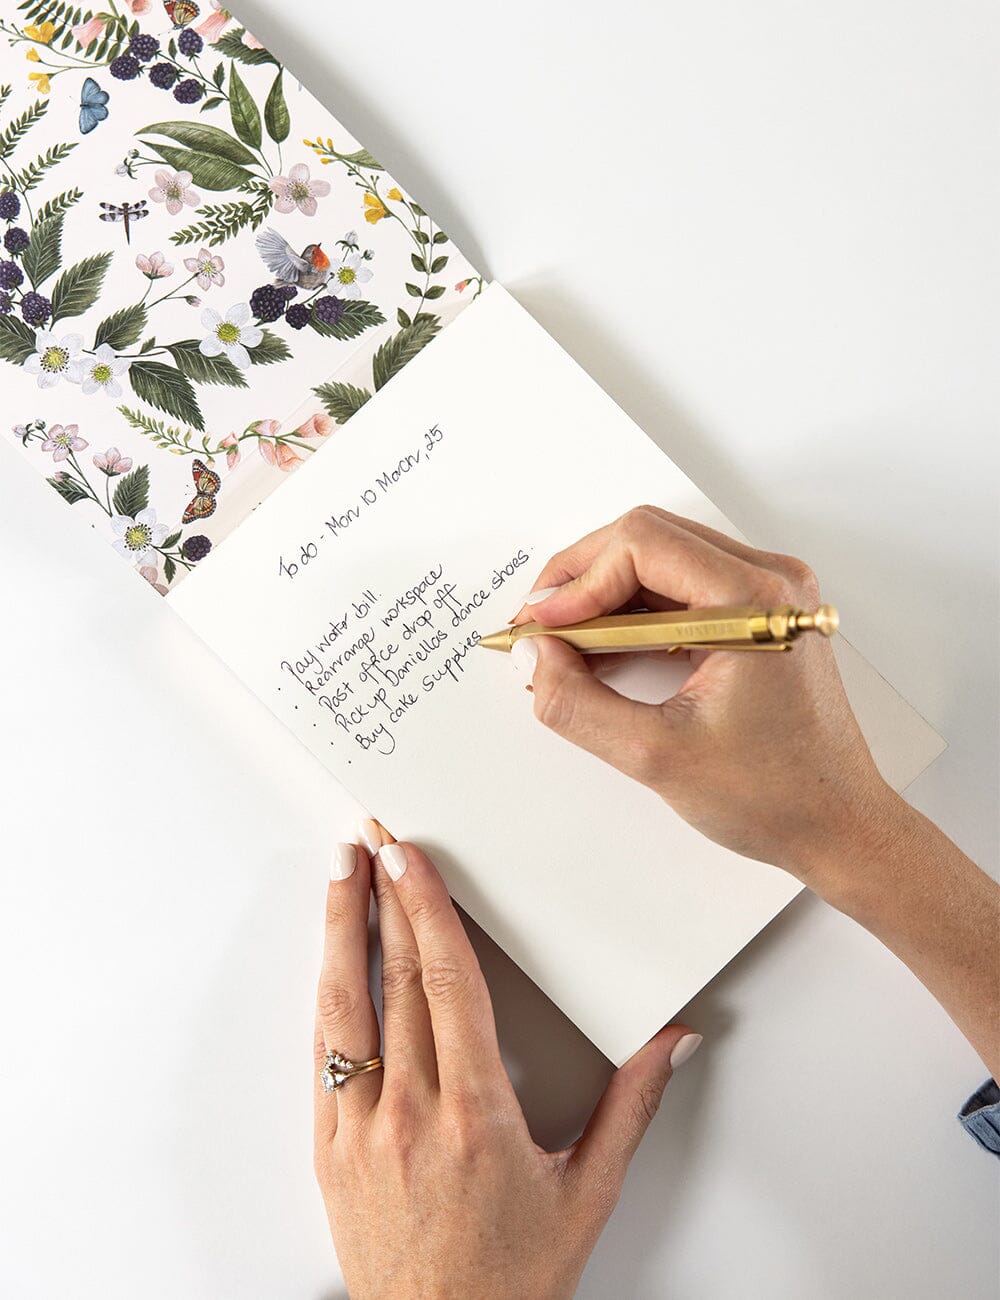 To do - Mon 10 March, 25
· Pay water bill.
· Rearrange workspace
· Post office drop off
· Pick up Daniellas dance shoes.
· Buy cake supplies
BELINDA